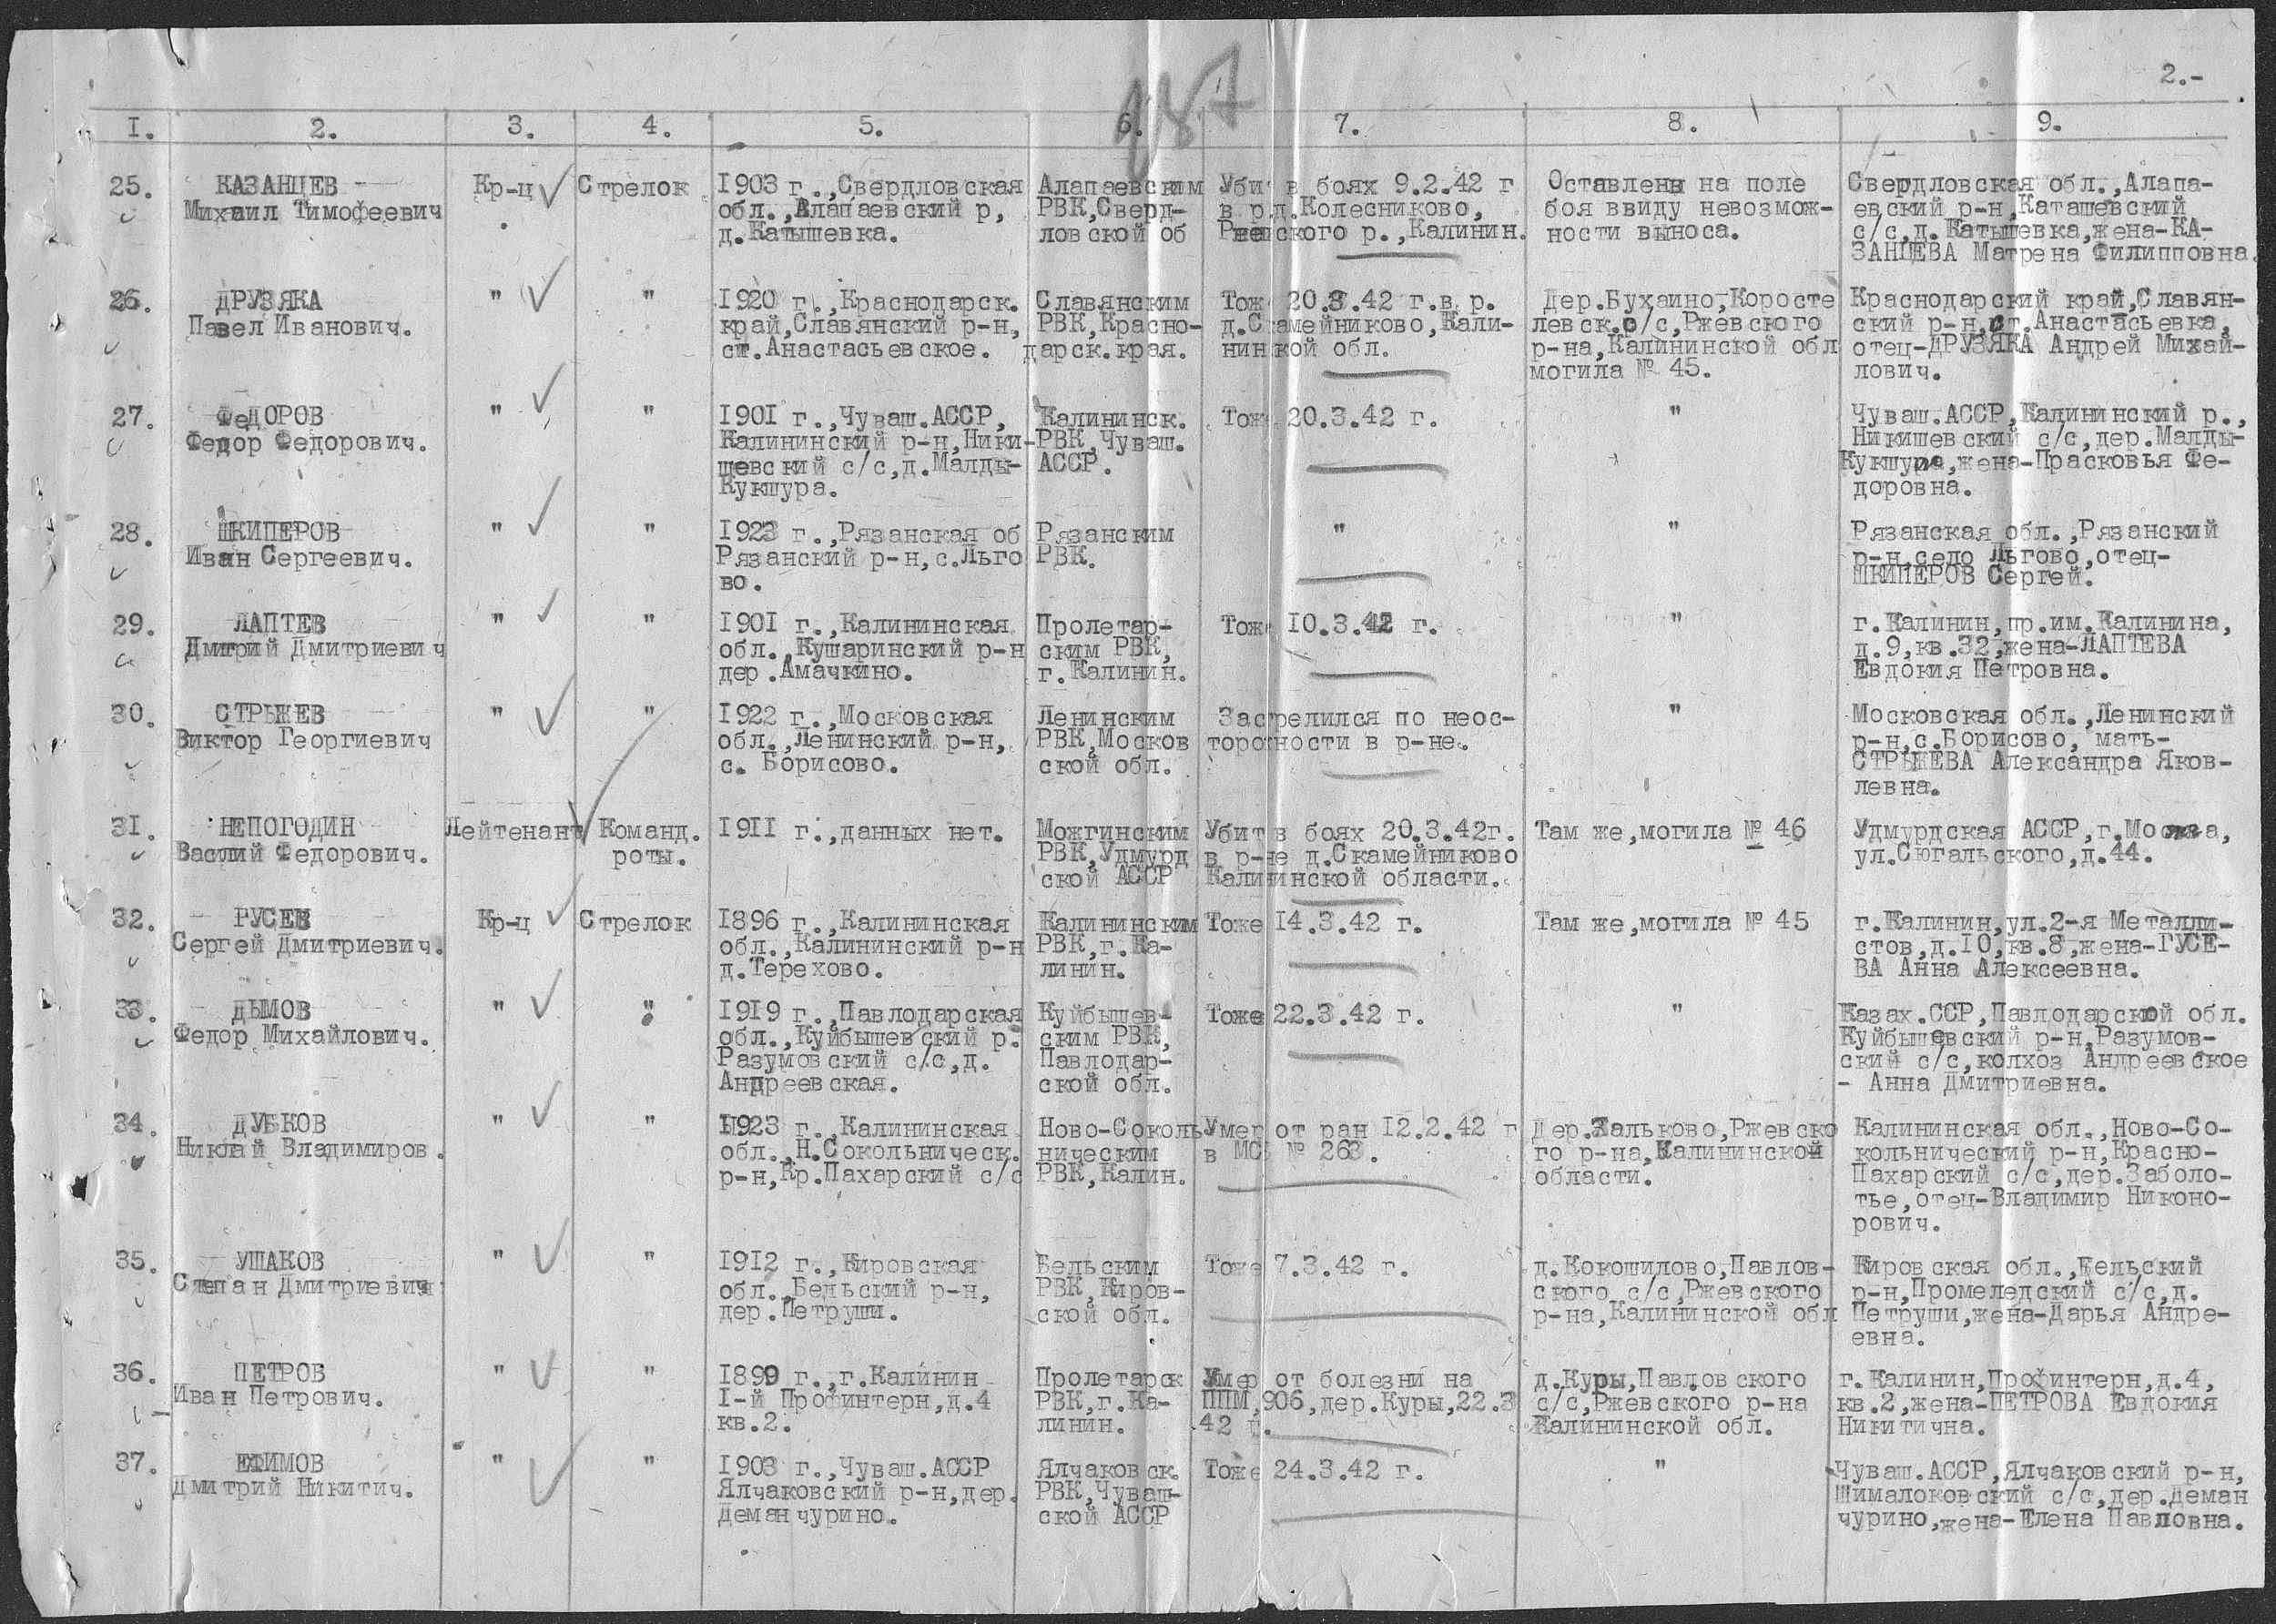 2.-
1. 2. 3. 4. 5. 6. 7. 8. 9.
25. КАЗАНЦЕВ
Михаил Тимофеевич
Кр-ц
Стрелок
1903 г.,Свердловская
обл.,Алапаевский р,
д.Катышевка.
Алапаевским
РВК,Сверд-
ловской об
Убит в боях 9.2.42 г
в р.д.Колесниково,
Ржевского р.,Калинин.
Оставлены на поле
боя ввиду невозмож-
ности выноса.
Свердловская обл.,Алапа-
евский р-н,Каташевский
с/с,д.Катышевка,жена-КА-
ЗАНЦЕВА Матрена Филипповна.
26. ДРУЗЯКА
Павел Иванович.
" "
1920 г.,Краснодарск.
край,Славянский р-н,
ст.Анастасьевское.
Славянским
РВК,Красно-
дарск.края.
Тоже 20.3.42 г.в р.
д.Скамейниково,Кали-
нинкой обл.
Дер.Бухаино,Коросте
левск.с/с,Ржевского
р-на,Калининской обл
могила № 45.
Краснодарский край,Славян-
ский р-н,ст.Анастасьевка,
отец-ДРУЗЯКА Андрей Михай-
лович.
27. ФеДОРОВ
Федор Федорович.
" "
1901 г.,Чуваш.АССР,
Калининский р-н,Ники-
шевский с/с,д.Малды-
Кукшура.
Калининск.
РВК,Чуваш.
АССР.
Тоже 20.3.42 г.
"
Чуваш.АССР,Калининский р.,
Никишевский с/с,дер.Малды-
Кукшура,жена-Прасковья Фе-
доровна.
28. ШКИПЕРОВ
Иван Сергеевич.
" "
1923 г.,Рязанская об
Рязанский р-н,с.Льго
во.
Рязанским
РВК.
"
"
Рязанская обл.,Рязанский
р-н,село Льгово,отец-
ШКИПЕРОВ Сергей.
29. ЛАПТЕВ
Дмитрий Дмитриевич
" "
1901 г.,Калининская
обл.,Кушаринский р-н
дер.Амачкино.
Пролетар-
ским РВК,
г.Калинин.
Тоже 10.3.42 г.
"
г.Калинин,пр.им.Калинина,
д.9,кв.32,жена-ЛАПТЕВА
Евдокия Петровна.
30. СТРЫЖЕВ
Виктор Георгиевич
" "
1922 г.,Московская
обл.,Ленинский р-н,
с. Борисово.
Ленинским
РВК,Москов
ской обл.
Застрелился по неос-
торожности в р-не.
"
Московская обл.,Ленинский
р-н,с.Борисово, мать-
СТРЫЖЕВА Александра Яков-
левна.
31. НЕПОГОДИН
Василий Федорович.
Лейтенант
Команд.
роты.
1911 г.,данных нет.
Можгинским
РВК,Удмурд
ской АССР
Убит в боях 20.3.42г.
в р-не д.Скамейниково
Калининской области.
Там же,могила № 46
Удмурдская АССР,г.Можга,
ул.Сюгальского,д.44.
32. РУСЕВ
Сергей Дмитриевич.
Кр-ц
Стрелок
1896 г.,Калининская
обл.,Калининский р-н
д.Терехово.
Калининским
РВК,г.Ка-
линин.
Тоже 14.3.42 г.
Там же,могила № 45
г.Калинин,ул.2-я Металли-
стов,д.10,кв.8,жена-ГУСЕ-
ВА Анна Алексеевна.
33. ДЫМОВ
Федор Михайлович.
" "
1919 г.,Павлодарская
обл.,Куйбышевский р.
Разумовский с/с,д.
Андреевская.
Куйбышев-
ским РВК,
Павлодар-
ской обл.
Тоже 22.3.42 г.
"
Казах.ССР,Павлодарской обл.
Куйбышевский р-н,Разумов-
ский с/с,колхоз Андреевское
- Анна Дмитриевна.
34. ДУБКОВ
Никлай Владимиров.
" "
1923 г.,Калининская
обл.,Н.Сокольническ.
р-н,Кр.Пахарский с/с
Ново-Соколь
ническим
РВК,Калин.
Умер от ран 12.2.42 г
в МСБ № 263.
Дер.Хальково,Ржевско
го р-на,Калининской
области.
Калининская обл.,Ново-Со-
кольнический р-н,Красно-
Пахарский с/с,дер.Заболо-
тье,отец-Владимир Никоно-
рович.
35. УШАКОВ
Степан Дмитриевич
" "
1912 г.,Кировская
обл.,Бельский р-н,
дер.Петруши.
Бельским
РВК,Киров-
ской обл.
Тоже 7.3.42 г.
д.Кокошилово,Павлов-
ского с/с,Ржевского
р-на,Калининской обл
Кировская обл.,Бельский
р-н,Промеледский с/с,д.
Петруши,жена-Дарья Андре-
евна.
36. ПЕТРОВ
Иван Петрович.
" "
1899 г.,г.Калинин
1-й Профинтерн,д.4
кв.2.
Пролетарск
РВК,г.Ка-
линин.
Умер от болезни на
ППМ,906,дер.Куры,22.3
42 г.
д.Куры,Павловского
с/с,Ржевского р-на
Калининской обл.
г.Калинин,Профинтерн,д.4,
кв.2,жена-ПЕТРОВА Евдокия
Никитична.
37. ЕФИМОВ
Дмитрий Никитич.
" "
1903 г.,Чуваш.АССР
Ялчаковский р-н,дер.
Деманчурино.
Ялчаковск.
РВК,Чуваш-
ской АССР
Тоже 24.3.42 г.
"
Чуваш.АССР,Ялчаковский р-н,
Шималоковский с/с,дер.Деман
чурино,жена-Елена Павловна.